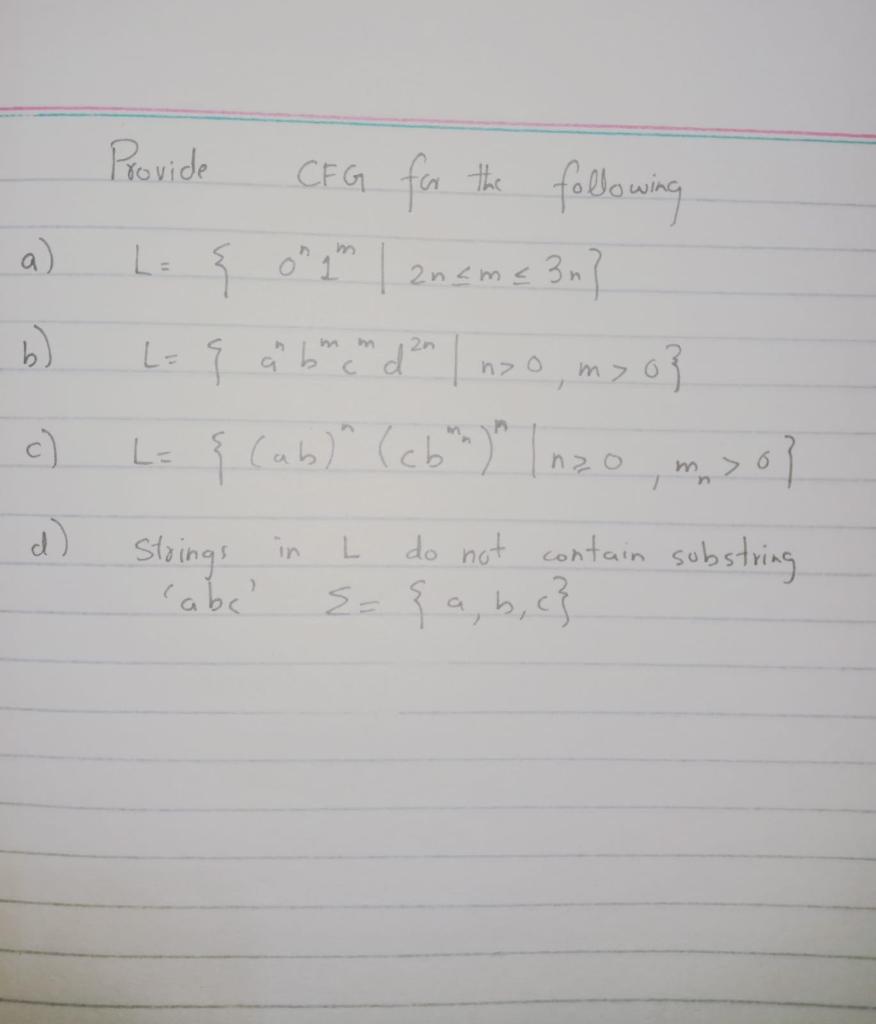 Provide CFG for the following
a) L = { 0ⁿ 1ᵐ | 2n ≤ m ≤ 3n }
b) L = { aⁿ bᵐ cᵐ d²ⁿ | n > 0, m > 0 }
c) L = { (ab)ⁿ (cb^{mₙ})ⁿ | n ≥ 0, mₙ > 0 }
d) Strings in L do not contain substring
'abc' Σ = { a, b, c }